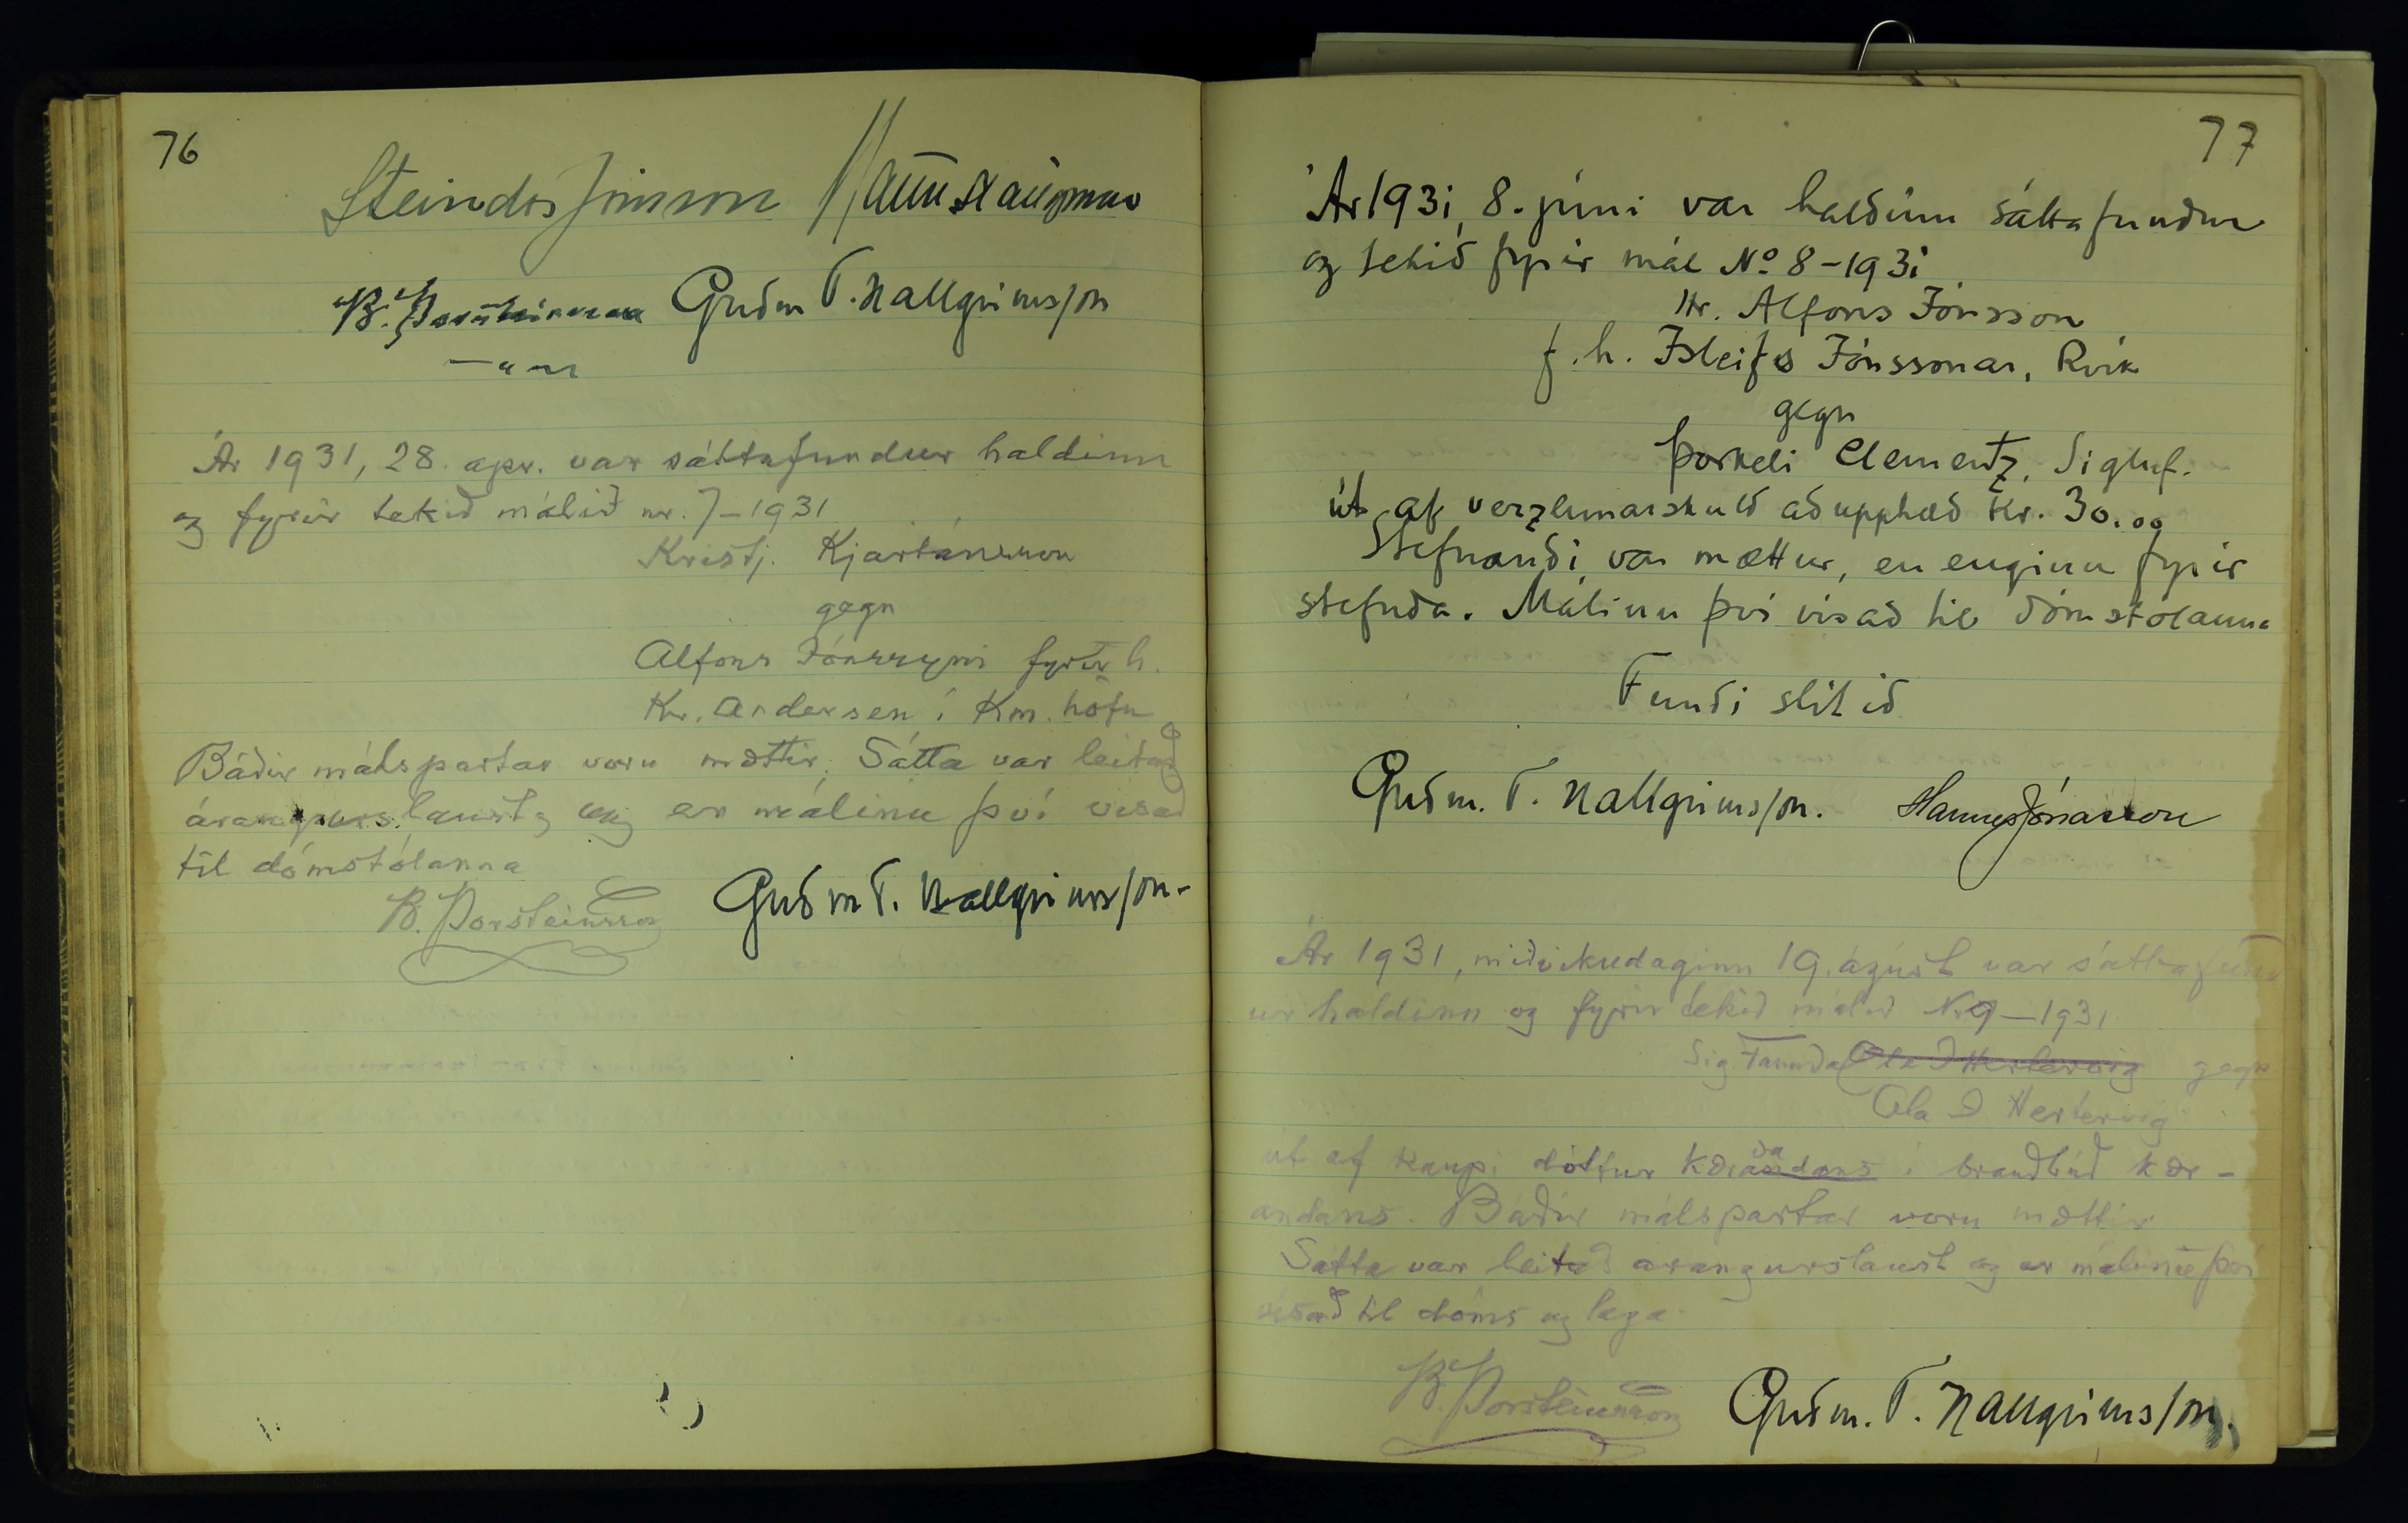 76
Steindór Jónsson
B. Þorsteinsson Guðm T. Hallgrímsson
Ár 1931, 28. apr. var sáttafundur haldinn
og fyrir tekið málið nr. 7-1931
Kristj. Kjartansson
gegn
Alfons Jónssyni fyrir h.
Kr. Andersen í Km. höfn
Báðir málspartar voru mættir. Sátta var leitað
árangurslaust og er málinu því vísað
til dómstólanna
B. Þorsteinsson Guðm T. Hallgrímsson.
77
Ár 1931, 8. júní var haldinn sáttafundur
og tekið fyrir mál No 8-1931
Hr. Alfons Jónsson
f. h. Ísleifs Jónssonar, Rvík
gegn
Þorkeli Clementz, Sigluf.
út af verzlunarskuld að upphæð Kr. 30.00
Stefnandi var mættur, en enginn fyrir
stefnda. Málinu því vísað til dómstólanna
Fundi slitið
Guðm. T. Hallgrímsson. Hannes Jónasson
Ár 1931, miðvikudaginn 19. ágúst var sáttafund
ur haldinn og fyrir tekið málið Nr 9-1931
Sig. Fanndal Ole O Hertervig gegn
Ola O Hertervig
út af kaupi dóttur kærða í brauðbúð kær-
andans. Báðir málspartar voru mættir
Sátta var leitað arangurslaust og er málinu því
vísað til dóms og laga.
B. Þorsteinsson Guðm. T. Hallgrímsson.